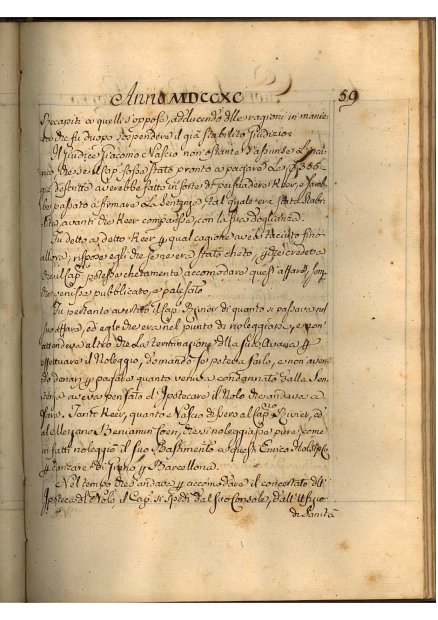 Anno MDCCXC
59
Recapiti a quelli s'oppose, adducendo delle ragioni in manie-
che fù duopo sospendere il già stabilito Giudizio.
Il Giudice Giacomo Nascio non estante s'assunse
che se il Cap. fosse stato pronto a pagare Le 335:
descritte averebbe fatto in forte di persuadere Keer, e
passato a firmare la Sentenza tal quale era stata stabi-
lita, avanti che Keer comparisse, con la sua doglianza.
Fu detto a detto Keer qual cagione aveva taciuto fino
allora, rispose egli che se ne era stato cheto, credeva
che il Cap. potesse chetamente accomodare quest'affare, senza
che venisse pubblicato, e palesato
Fu pertanto avertito il Cap. Riner di quanto si passava sul
suo affare, ed egli che era nel punto di noleggiarsi, e non
attendeva altro che la terminazione della sua
effettuare il Noleggio, domandò se poteva farlo, e non aven-
do denari pagare quanto veniva condannato dalla Sen-
tenza aveva pensato d'Ipotecare il Nolo che andava a
fare. Tanto Keer, quanto Nascio dissero al Cap. Riner, ed
al Mezzano Beniamin Coen, che si noleggiasse pure come
in fatti noleggiò il suo Bastimento a questi Enrico
caricare di Grano Barcellona.
Nel tempo che andava accomodare il concertato dell'
Ipoteca del Nolo il Cap. si spedì dal suo Console, dall'Ufizio
di Sanità